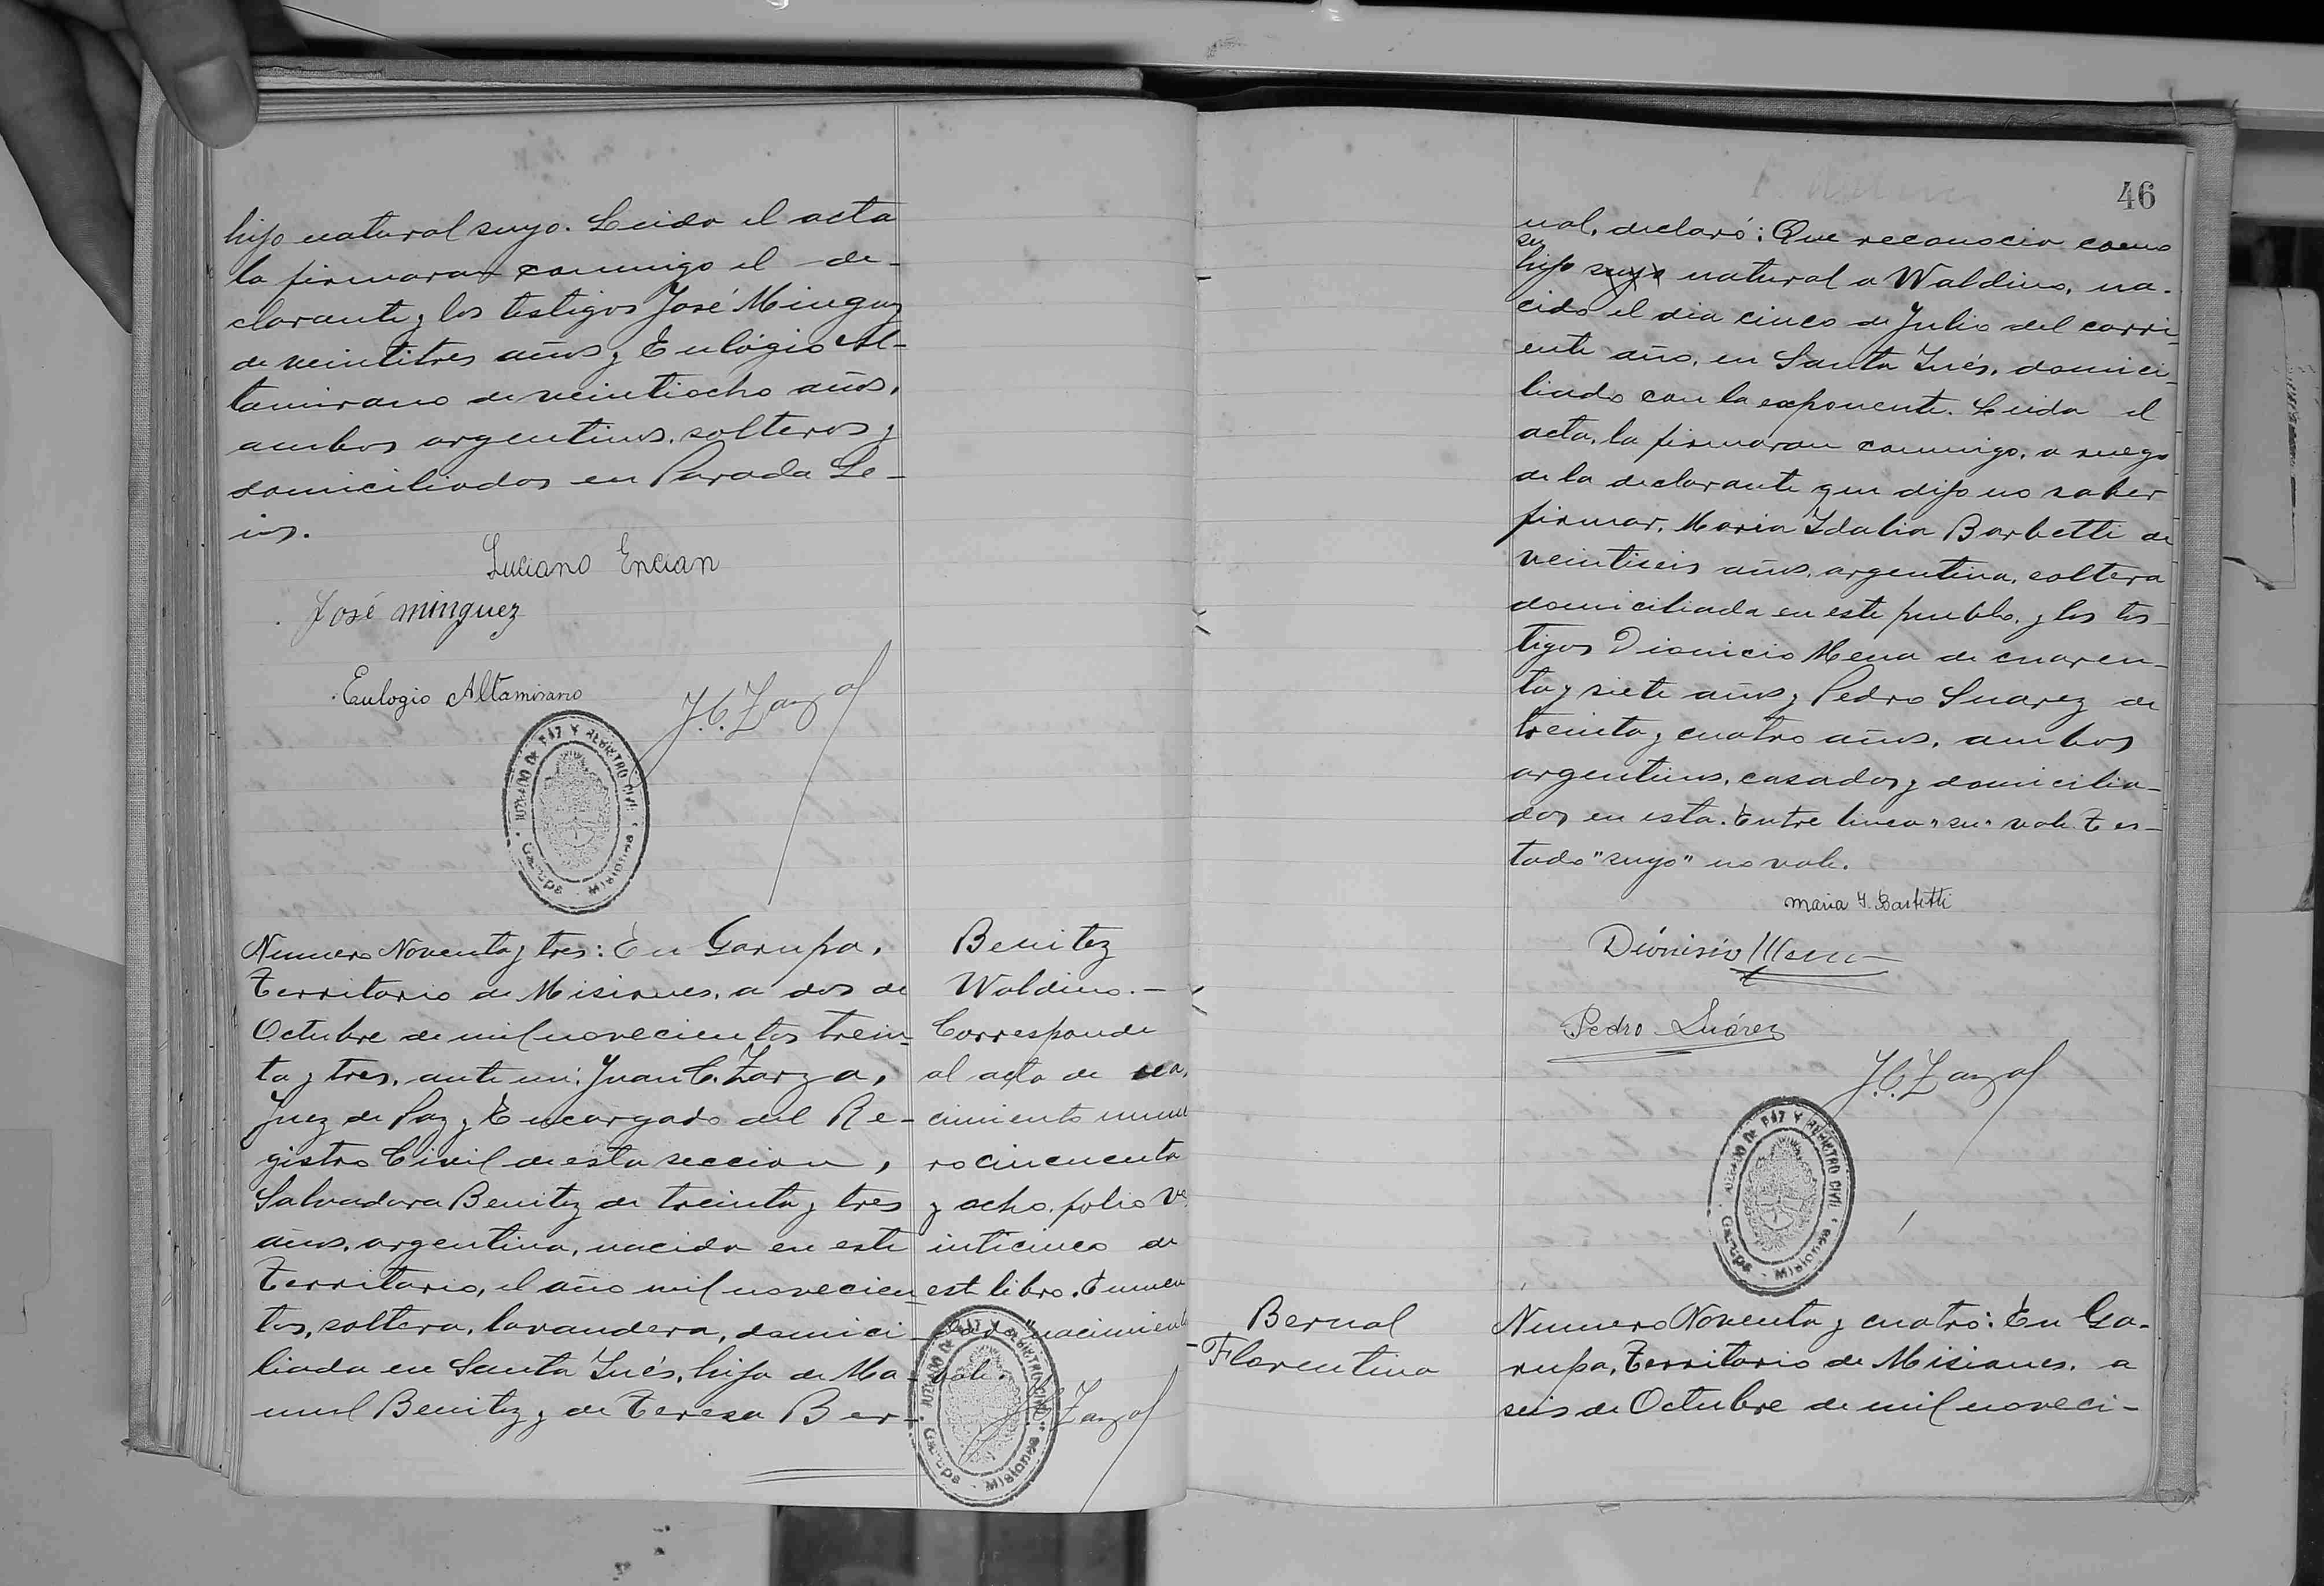 hijo natural suyo. Leida el acta
la firmaran conmigo el de-
clarante y los testigos José Minguez
de veintitres años y Eulógio Al-
tamirano de veintiocho años,
ambos argentinos, solteros y
domiciliados en Parada Le-
is.
Luciano Encian
José minguez
Eulogio Altamirano
J.C. Zarza
JUZGADO DE PAZ Y REGISTRO CIVIL
Garupa - Misiones
Numero Noventa y tres: En Garupa,
Territorio de Misiones, a dos de
Octubre de mil novecientos trein-
ta y tres, ante mi: Juan C. Zarza,
Juez de Paz y Encargado del Re-
gistro Civil de esta seccion,
Salvadora Benitez de treinta y tres
años, argentina, nacida en este
Territorio, el año mil novecien-
tos, soltera, lavandera, domici-
liada en Santa Inés, hija de Ma-
nuel Benitez y de Teresa Ber-
Benitez
Waldino.-
Corresponde
al acta de na,
cimiento nume
ro cincuenta
y ocho, folio ve
inticinco de
est libro. Enmen
dado "nacimiento"
vale.
J.C. Zarza
JUZGADO DE PAZ Y REGISTRO CIVIL
Garupa - Misiones
46
nal, declaró: Que reconocia como
su
hijo suyo natural a Waldino, na-
cido el dia cinco de Julio del corri-
ente año, en Santa Inés, domici-
liado con la exponente. Leida el
acta, la firmaran conmigo, a ruego
de la declarante que dijo no saber
firmar, Maria Idalia Barbetti de
veintiseis años, argentina, soltera
domiciliada en este pueblo, y los tes-
tigos Dionicio Mena de cuaren-
ta y siete años y Pedro Suarez de
treinta y cuatro años, ambos
argentinos, casados y domicilia-
dos en esta. Entre linea "su" vale. Tes-
tado "suyo" no vale.
Maria I. Barbetti
Dionisio Mena
Pedro Suárez
J.C. Zarza
JUZGADO DE PAZ Y REGISTRO CIVIL
Garupa - Misiones
Bernal
Florentino
Numero Noventa y cuatro: En Ga-
rupa, Territorio de Misiones, a
seis de Octubre de mil noveci-